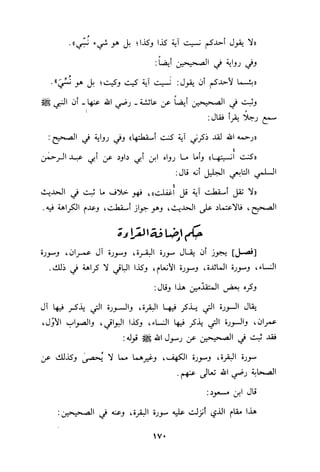 «لا يقول أحدكم نسيت آية كذا وكذا؛ بل هو شيء نُسِّيَ».
وفي رواية في الصحيحين أيضاً:
«بئسما لأحدكم أن يقول: نَسيت آية كيت وكيت؛ بل هو نُسِّيَ».
وثبت في الصحيحين أيضاً عن عائشة ـ رضي الله عنها ـ أن النبي ﷺ
سمع رجلاً يقرأ فقال:
«رحمه الله لقد ذكرني آية كنت أسقطتها» وفي رواية في الصحيح:
«كنت أُنسيتهـا» وأما مـا رواه ابن أبي داود عن أبي عبـد الـرحمن
السلمي التابعي الجليل أنه قال:
«لا تقل أسقطت آية قل أُغفلت»، فهو خلاف ما ثبت في الحديث
الصحيح، فالاعتماد على الحديث، وهو جواز أسقطت، وعدم الكراهة فيه.
حكم إضافة القراءة
[فصل] يجوز أن يقـال سورة البقـرة، وسورة آل عمـران، وسورة
النساء، وسورة المائدة، وسورة الأنعام، وكذا الباقي لا كراهة في ذلك.
وكره بعض المتقدّمين هذا وقال:
يقال السورة التي يـذكر فيهـا البقرة، والسـورة التي يذكـر فيها آل
عمران، والسورة التي يذكر فيها النساء، وكذا البواقي، والصواب الأوّل،
فقد ثبت في الصحيحين عن رسول الله ﷺ قوله:
سورة البقرة، وسورة الكهف، وغيرهما مما لا يُحصىٰ وكذلك عن
الصحابة رضي الله تعالى عنهم.
قال ابن مسعود:
هذا مقام الذي أنزلت عليه سورة البقرة، وعنه في الصحيحين:
١٧٠